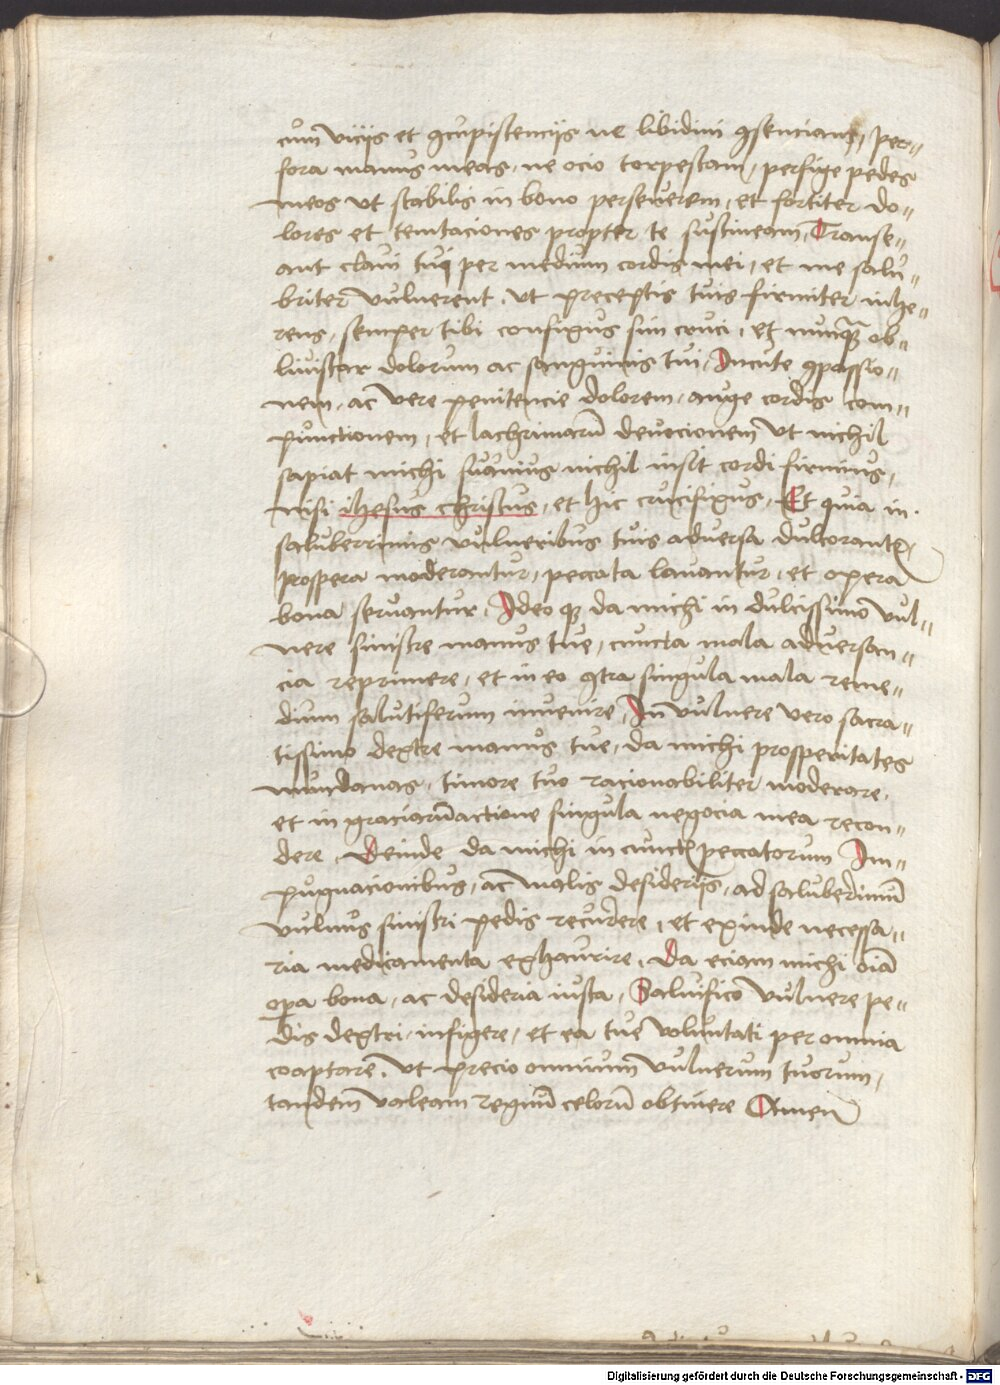 cum viciis et ꝯcupistenciis ne libidini ꝯsenciam, per-
fora manus meas, ne ocio torpestam, perfige pedes
meos vt stabilis in bono perseuerem, et fortiter do-
lores et temtaciones propter te sustineam, Transe-
ant claui tui per medium cordis mei, et me salu-
briter vulnerent, vt preceptis tuis firmiter inhe-
rens, semper tibi confixus sim cruci, et nunqꝫ ob-
liuistar dolorum ac sanguinis tui, Incute ꝯpassio-
nem, ac vere penitencie dolorem, auge cordis com-
punctionem, et lachrimarū deuocionem vt nichil
sapiat michi suauius nichil insit cordi firmius,
nisi ihesus christus, et hic crucifixus, Et quia in
saluberrimis vulneribus tuis aduersa dulcorantᷣ
prospera moderantur, peccata lauantur, et opera
bona seruantur, Ideo qꝫ da michi in dulcissimo vul-
nere sinistre manus tue, cuncta mala aduersan-
cia reprimere, et in eo ꝯtra singula mala reme-
dium salutiferum inuenire, In vulnere vero sacra-
tissimo dextre manus tue, da michi prosperitates
mundanas, timore tuo racionabiliter moderare,
et in graciarūactione singula negocia mea recon-
dere, Deinde da michi in cunctꝭ peccatorum Im-
pugnacionibus, ac malis desideriis, ad saluberimū
vulnus sinistri pedis recurrere, et exinde necessa-
ria medicamenta exhaurire, Da eciam michi oīa
oꝑa bona, ac desideria iusta, Saluifico vulnere pe-
dis dextri, infigere, et ea tue voluntati per omnia
coaptare, vt precio omnium vulnerum tuorum,
tandem valeam regnū celorū obtinere Amen
Digitalisierung gefördert durch die Deutsche Forschungsgemeinschaft - DFG